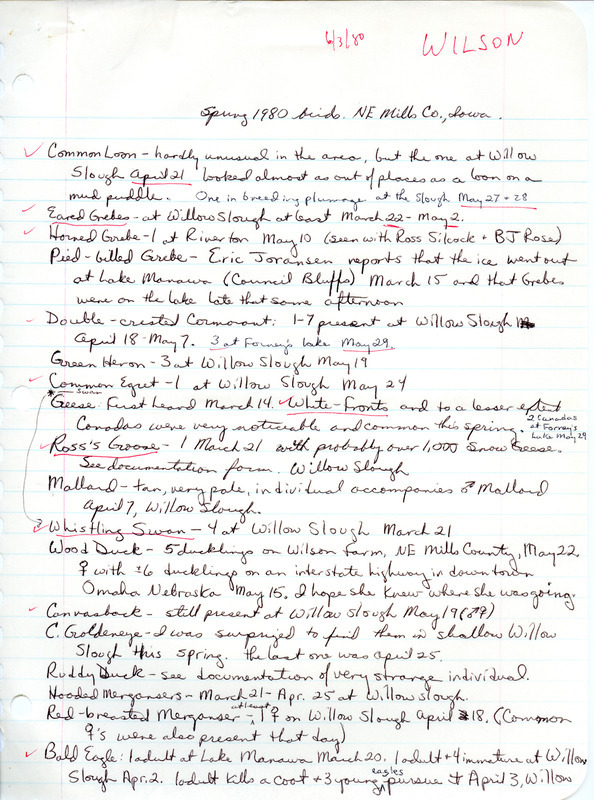 6/3/80 WILSON
Spring 1980 birds. NE Mills Co., Iowa.
✓ Common Loon - hardly unusual in the area, but the one at Willow
Slough April 21 looked almost as out of places as a loon on a
mud puddle. One in breeding plumage at the slough May 27 + 28
✓ Eared Grebes - at Willow Slough at least March 22 - May 2.
✓ Horned Grebe - 1 at Riverton May 10 (seen with Ross Silcock + BJ Rose)
Pied-billed Grebe - Eric Joransen reports that the ice went out
at Lake Manawa (Council Bluffs) March 15 and that Grebes
were on the lake late that same afternoon
✓ Double-crested Cormorant: 1-7 present at Willow Slough
April 18-May 7. 3 at Forney's Lake May 29.
Green Heron - 3 at Willow Slough May 19
✓ Common Egret - 1 at Willow Slough May 24
* Swan
Geese: First heard March 14. ✓ White-fronts and to a lesser extent
Canadas were very noticeable and common this spring. 2 Canadas at Forney's Lake May 29
✓ Ross's Goose - 1 March 21 with probably over 1,000 Snow Geese.
See documentation form. Willow Slough
Mallard - tan, very pale, individual accompanies ♂ Mallard
April 7, Willow Slough.
✓ Whistling Swan - 4 at Willow Slough March 21
Wood Duck - 5 ducklings on Wilson farm, NE Mills County, May 22.
♀ with ±6 ducklings on an interstate highway in downtown
Omaha Nebraska May 15. I hope she knew where she was going.
✓ Canvasback - still present at Willow Slough May 19 (♂♀)
C. Goldeneye - I was surprized to find them in shallow Willow
Slough this spring. The last one was April 25.
Ruddy Duck - see documentation of very strange individual.
Hooded Mergansers - March 21 - Apr. 25 at Willow Slough.
Red-breasted Merganser - at least 1 ♀ on Willow Slough April 18. (Common
♀'s were also present that day)
✓ Bald Eagle: 1 adult at Lake Manawa March 20. 1 adult + 4 immature at Willow
Slough Apr. 2. 1 adult kills a coot + 3 young eagles pursue it April 3, Willow